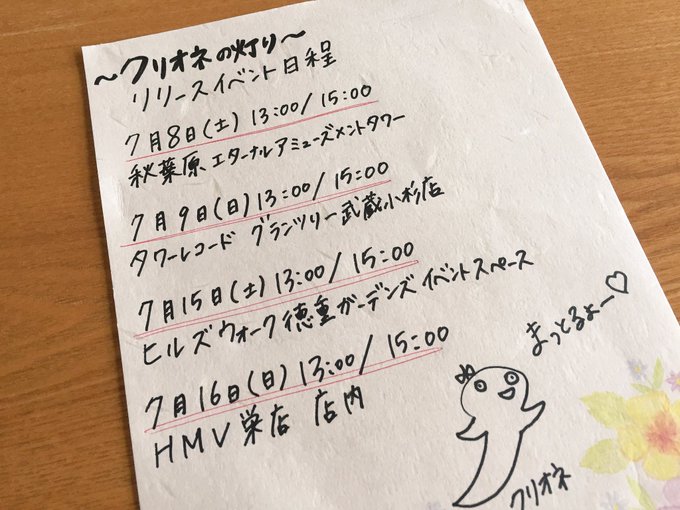 ～クリオネの灯り～
リリースイベント日程
7月8日(土) 13:00/15:00
秋葉原エターナルアミューズメントタワー
7月9日(日) 13:00/15:00
タワーレコード グランツリー武蔵小杉店
7月15日(土) 13:00/15:00
ヒルズウォーク徳重ガーデンズイベントスペース
7月16日(日) 13:00/15:00
HMV栄店 店内
まっとるよー♡
クリオネ